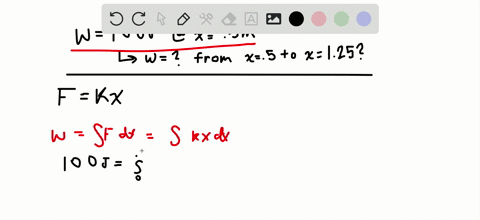 W = 100J @ x = .5m
↳ W = ? from x=.5 to x=1.25?
F = Kx
W = ∫F dx = ∫ Kx dx
100J = ∫
0